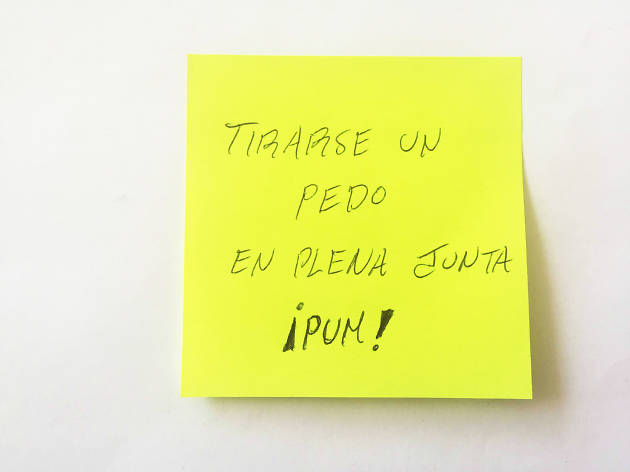 TIRARSE UN
PEDO
EN PLENA JUNTA
¡PUM!